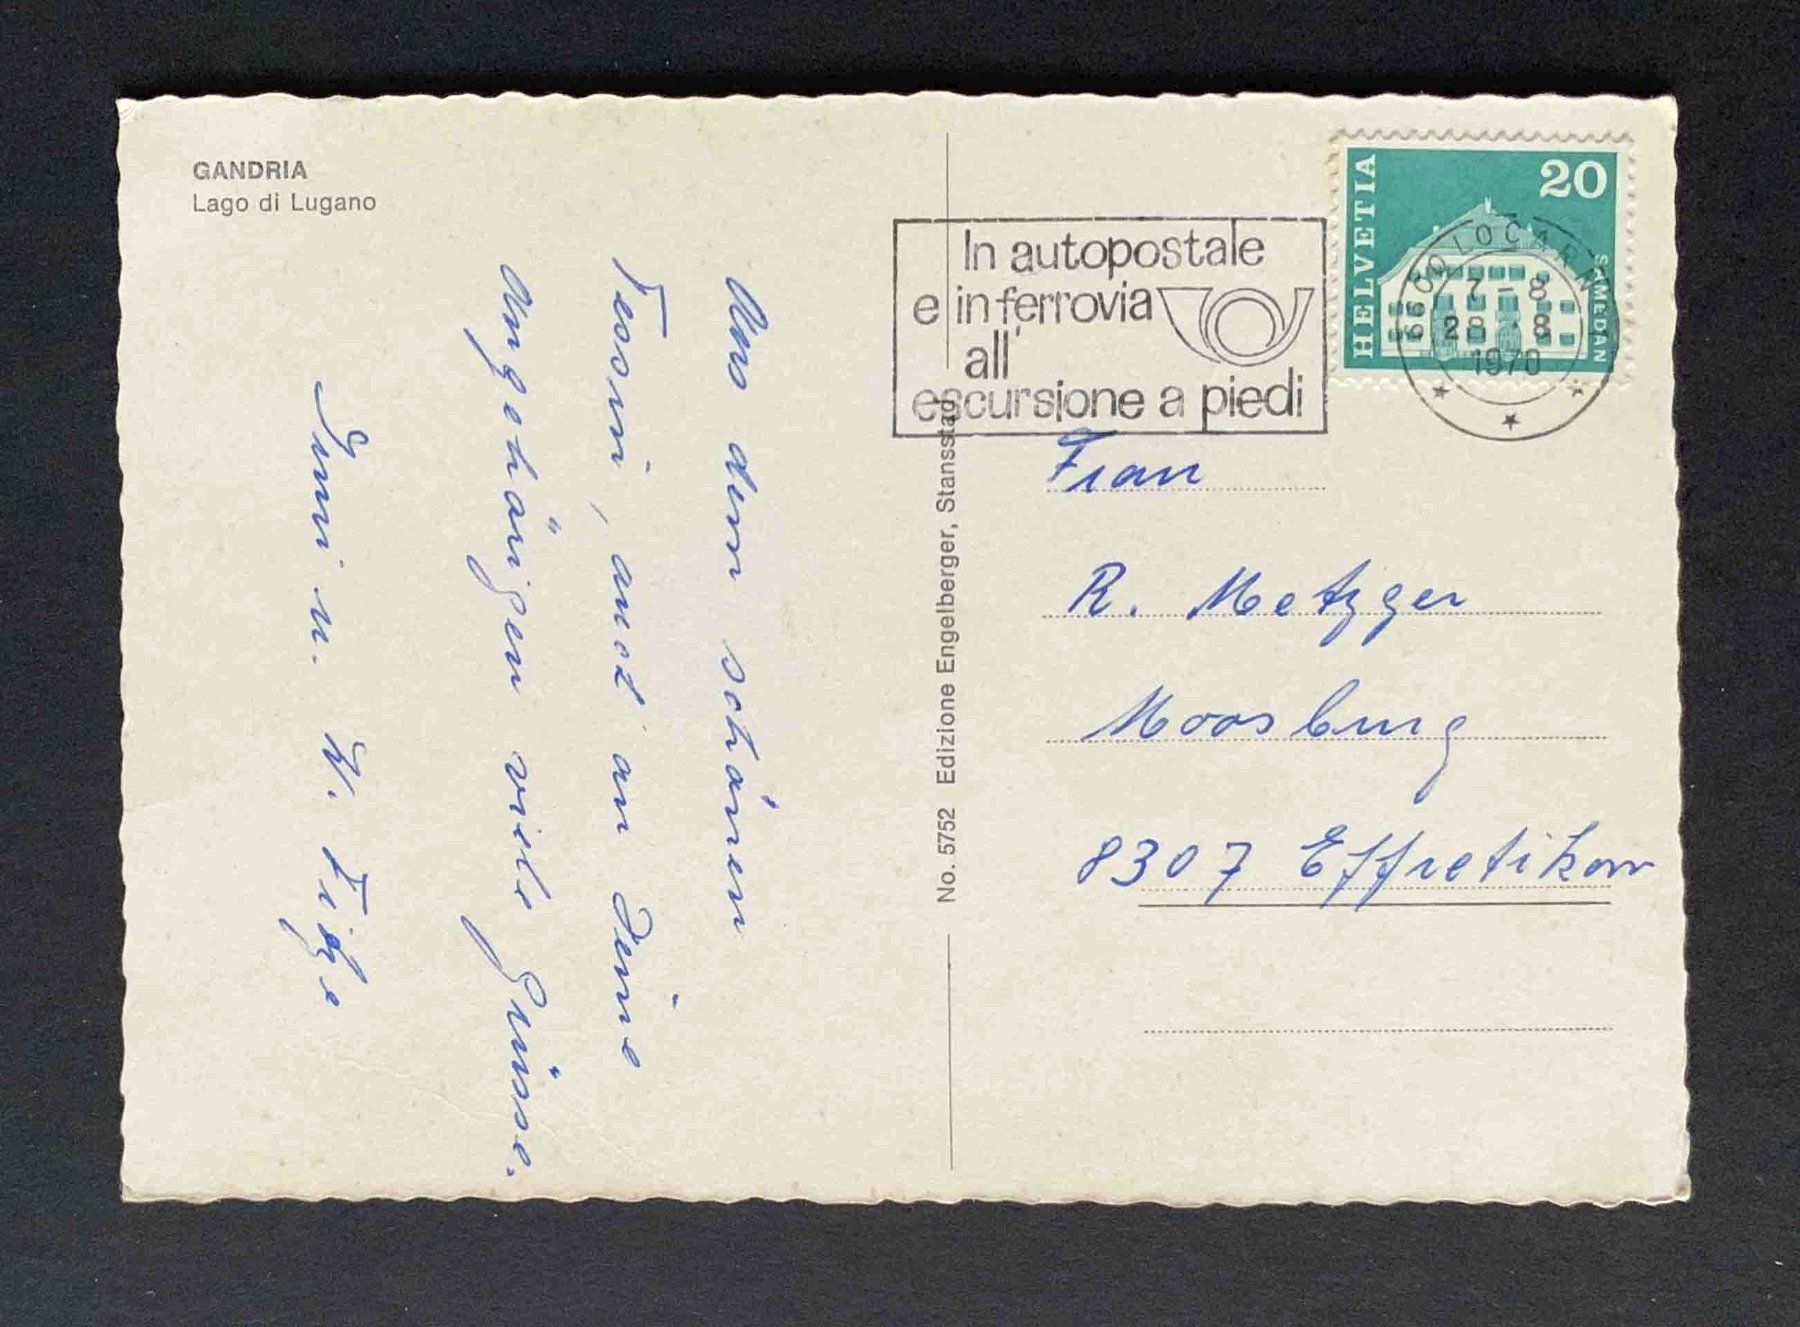 GANDRIA
Lago di Lugano
Aus dem schönen
Tessin, auch an Deine
Angehörigen viele Grüsse.
u. W.
No. 5752 Edizione Engelberger, Stansstad
In autopostale
e in ferrovia
all'
escursione a piedi
HELVETIA
20
SAMEDAN
LOCARN
7-8
28.-8
1970
Frau
R. Metzger
Moosburg
8307 Effretikon